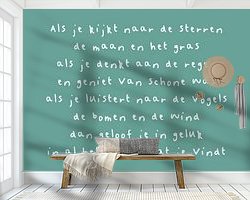 Als je kijkt naar de sterren
de maan en het gras
als je denkt aan de rege
en geniet van schone wo
als je luistert naar de vogels
de bomen en de wind
dan geloof je in geluk
in al vindt